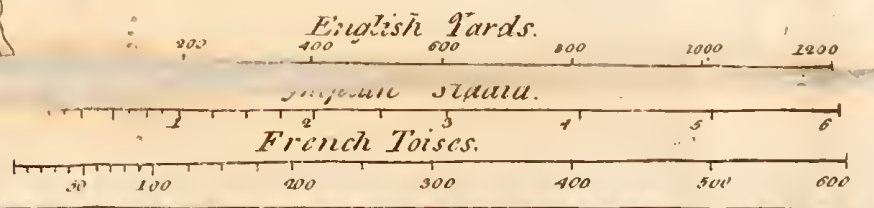 English Yards.
200 400 600 800 1000 1200
Stadia.
1 2 3 4 5 6
French Toises.
50 100 200 300 400 500 600